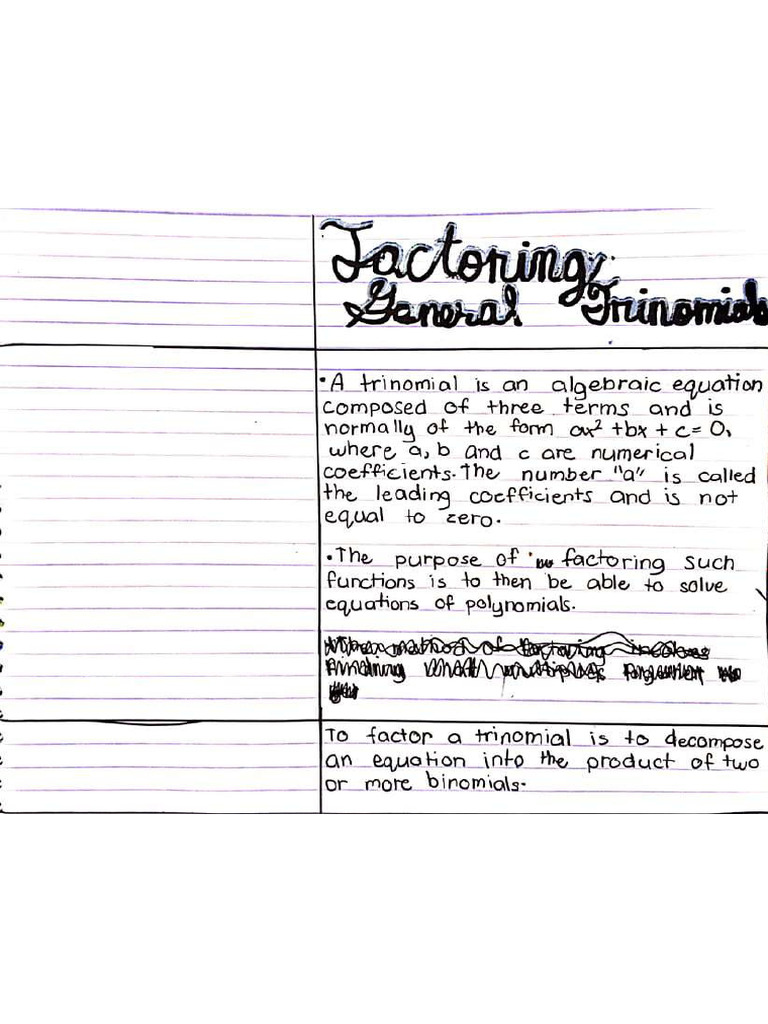 Factoring
General Trinomials
• A trinomial is an algebraic equation
composed of three terms and is
normally of the form ax² + bx + c = 0,
where a, b and c are numerical
coefficients. The number "a" is called
the leading coefficients and is not
equal to zero.
• The purpose of factoring such
functions is to then be able to solve
equations of polynomials.
To factor a trinomial is to decompose
an equation into the product of two
or more binomials.